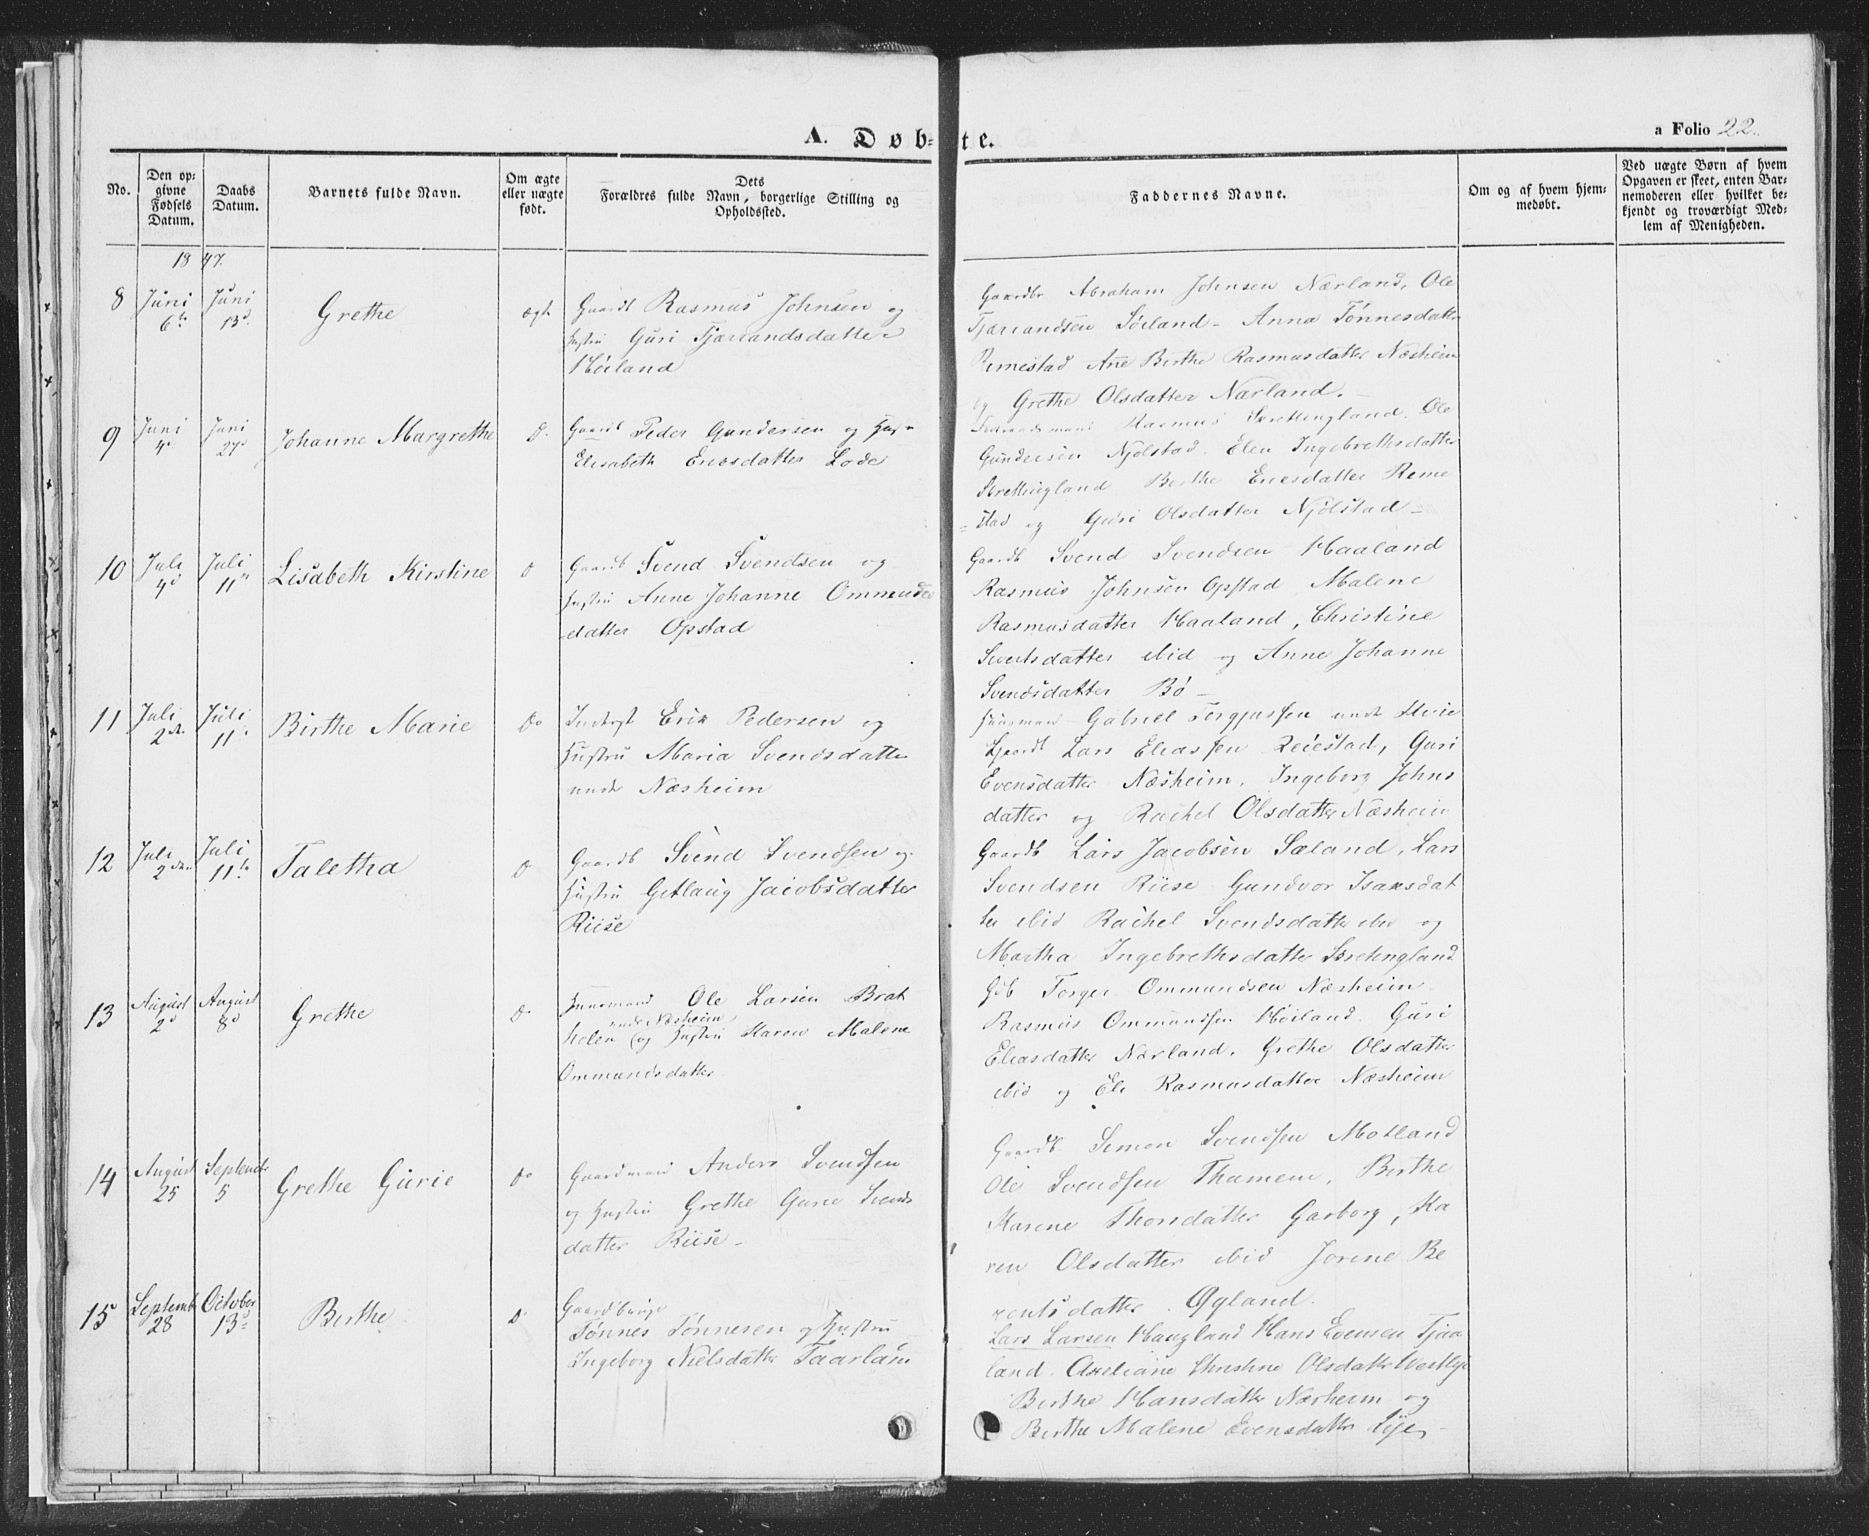 A. Døb-te.
a Folio 22.
No.
Den op-
givne
Fødsels
Datum.
Daabs
Datum.
Barnets fulde Navn.
Om ægte
eller uægte
født.
Dets
Forældres fulde Navn, borgerlige Stilling og
Opholdssted.
Faddernes Navne.
Om og af hvem hjem-
medøbt.
Ved uægte Børn af hvem
Opgaven er skeet, enten Bar-
nemoderen eller hvilket be-
kjendt og troværdigt Med-
lem af Menigheden.
1847.
8
Juni
6te
Juni
13d.
Grethe
ægte
Gaardb Rasmus Johnsen og
Hustru Guri Tjærandsdatter
Høiland
Gaardbr Abraham Johnsen Nærland, Ole
Tjærandsen Søiland - Anna Tønnesdatter
Rimestad Ane Birthe Rasmusdatter Næsheim
og Grethe Olsdatter Nærland.
9
Juni
4d
Juni
27d
Johanne Margrethe
Do
Gaardb Peder Gundersen og Hustr
Elisabeth Enosdatter Lode
Rasmus Grettingland. Ole
Gundersen Njølstad. Elen Ingebrethsdatter
Grettingland Berthe Enosdatter Reme
stad og Guri Olsdatter Njølstad -
10
Juli
4d
Juli
11
Lisabeth Kirstine
Do
Gaardb Svend Svendsen og
Hustru Anne Johanne Ommunds
datter Opstad
Gaardb Svend Svendsen Haaland
Rasmus Johnsen Opstad Malene
Rasmusdatter Haaland, Christine
Sivertsdatter ibid og Anne Johanne
Svendsdatter Bø -
11
Juli
2den
Juli
11
Birthe Marie
Do
Inderst Erik Pedersen og
Hustru Maria Svendsdatter
under Næsheim
Huusmand Gabriel Torgjussen under
Gaardb Lars Eliassen Reiestad, Guri
Evensdatter Næsheim, Ingeborg Johns
datter og Rachel Olsdatter Næsheim
12
Juli
2den
Juli
11te
Taletha
Do
Gaardb Svend Svendsen og
Hustru Getlaug Jacobsdatter
Riise
Gaardb Lars Jacobsen Sæland, Lars
Svendsen Riise Gundvor Isaksdat
ter ibid Rachel Svendsdatter ibid og
Martha Ingebrethsdatter Grettingland
13
August
2d
August
8d
Grethe
Do
Huusmand Ole Larsen Brat
under Næsheim
holen (og Hustru Karen Malene
Ommundsdatter
Gdb Torger Ommundsen Næsheim
Rasmus Ommundsen Høiland. Guri
Eliasdatter Nærland, Grethe Olsdatter
ibid og Eli Rasmusdatter Næsheim
14
August
25
Septemb
5
Grethe Gurie
Do
Gaardmand Anders Svendsen
og Hustru Grethe Gurie Svends
datter Riise -
Gaardb Simon Svendsen Motland
Ole Svendsen Thamem, Birthe
Karene Thorsdatter Garborg, Ka
ren Olsdatter ibid Jorene Be
rentsdatter Øgland.
15
Septemb
28
October
13d
Birthe
Do
Gaardbruger
Tønnes Tønnesen og Hustru
Ingeborg Nielsdatter Taarland
Lars Larsen Haugland Hans Evensen Tjaa
land. Axeliane Christine Olsdatter Vestlye
Birthe Hansdatter Nærheim og
Birthe Malene Evensdatter Lye -